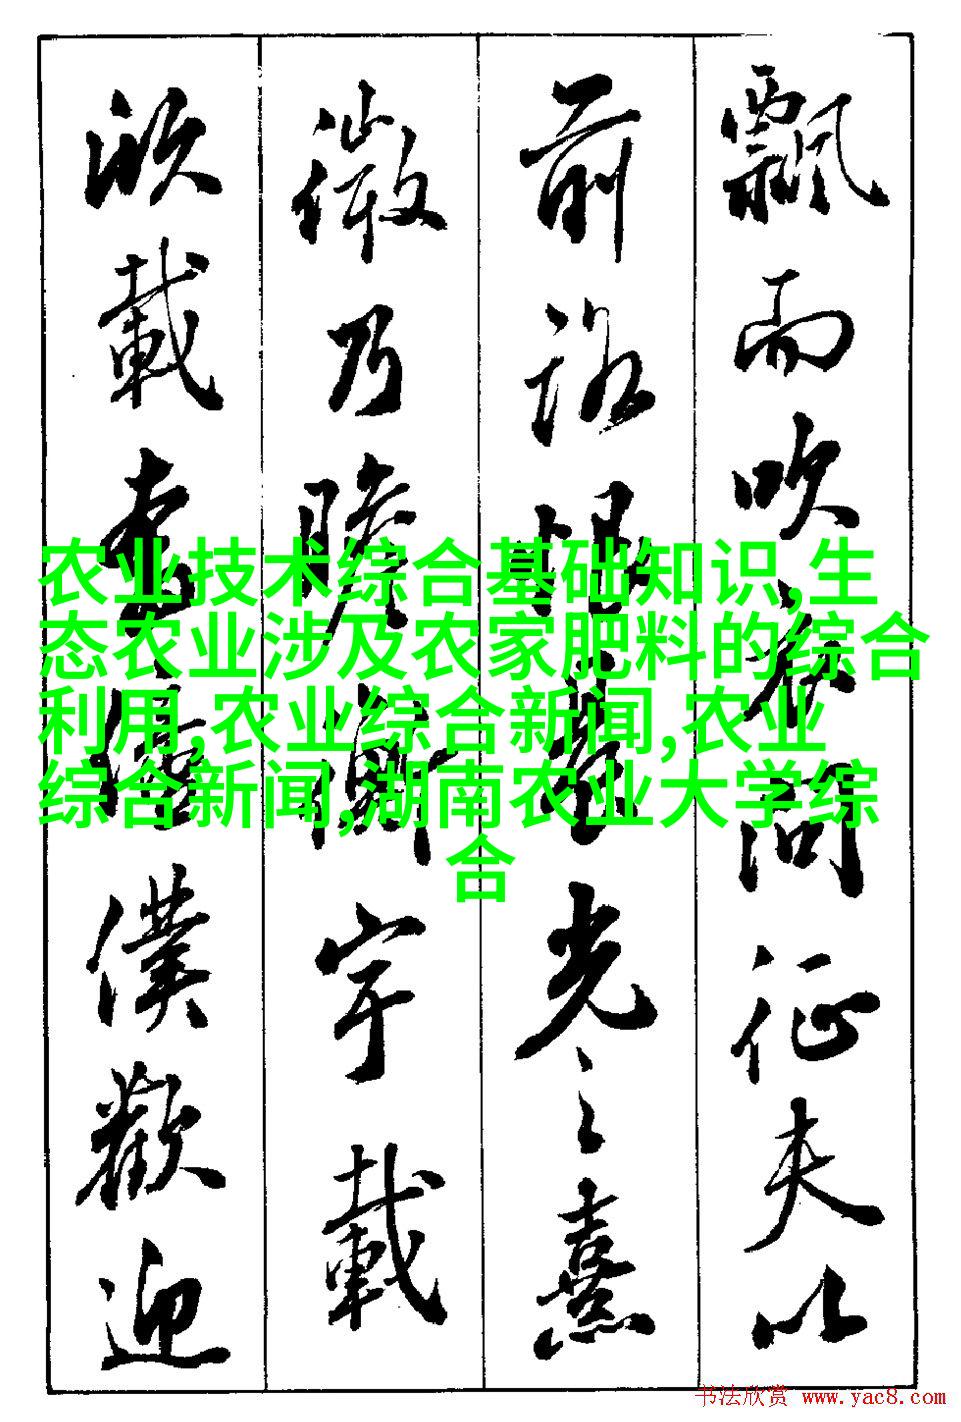 飄而吹衣問征夫以
前路恨晨光之熹
微乃瞻衡宇載
欣載奔僮僕歡迎
农业技术综合基础知识,生
态农业涉及农家肥料的综合
利用,农业综合新闻,农业
综合新闻,湖南农业大学综
合
书法欣赏 www.yac8.com